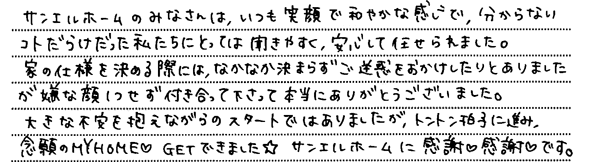 サンエルホームのみなさんは,いつも笑顔で和やかな感じで,分からない
コトだらけだった私たちにとっては聞きやすく,安心して任せられました。
家の仕様を決める際には,なかなか決まらずご迷惑をおかけしたりとありました
が嫌な顔1つせず付き合って下さって本当にありがとうございました。
大きな不安を抱えながらのスタートではありましたが,トントン拍子に進み,
念願のMYHOME♡ GETできました☆ サンエルホームに感謝♡感謝♡です。